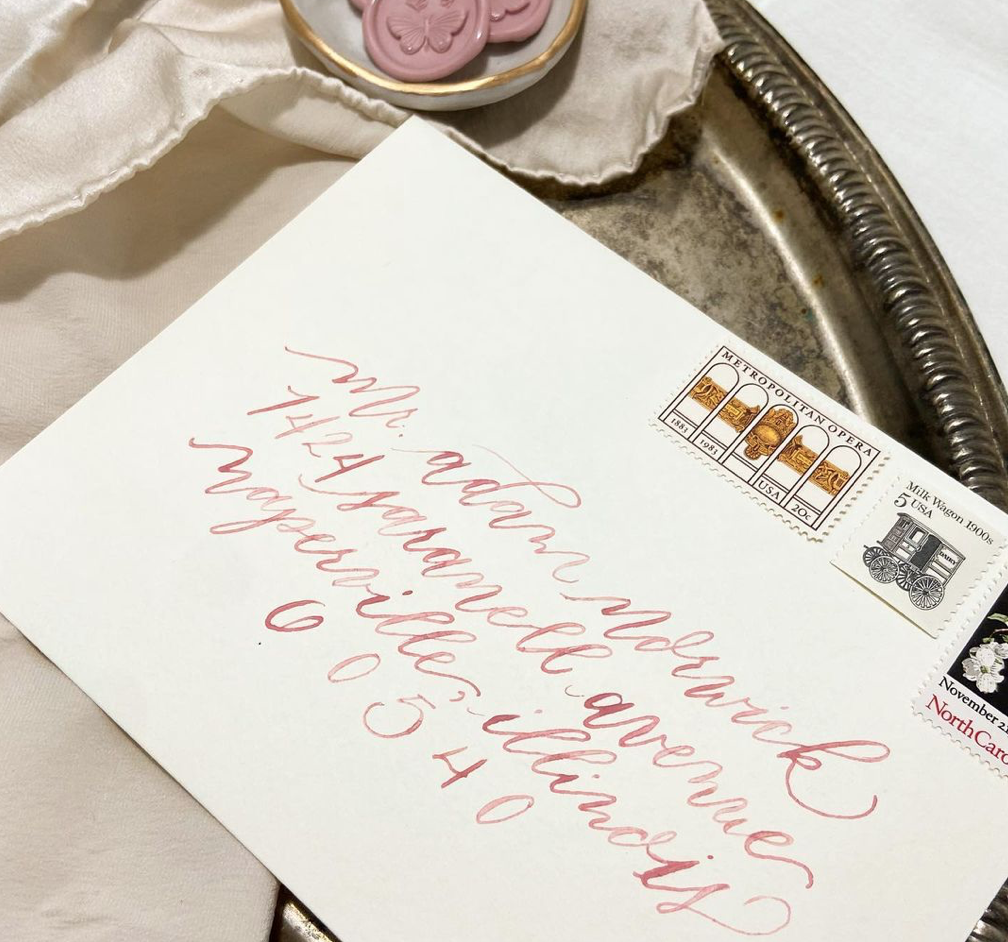 Mr. adam Norwick
7424 saranell avenue
naperville, illinois
60540
METROPOLITAN OPERA
1881 1981 USA 20c
Milk Wagon 1900s
5 USA
DAIRY
November 21
North Caro